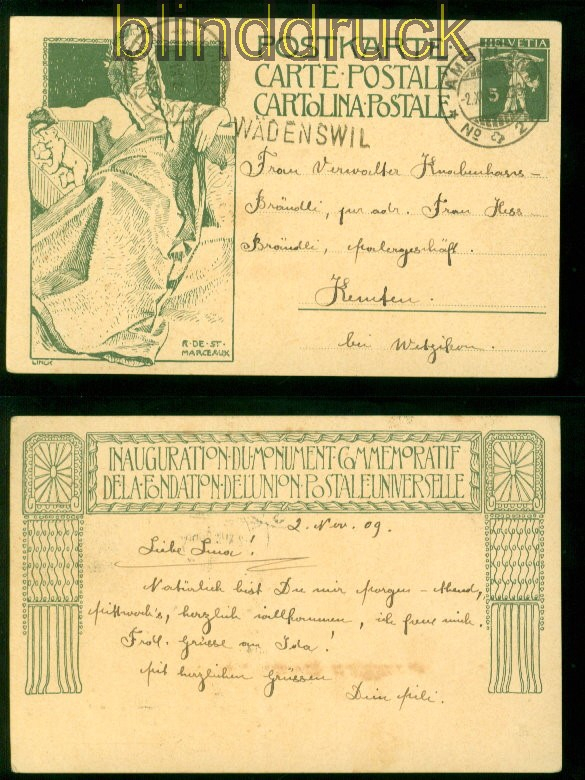 blinddruck
POSTKARTE
CARTE·POSTALE
CARTOLINA·POSTALE
HELVETIA
5
AMB
-2.X
No 2
WÄDENSWIL
Frau Verwalter Knabenhans-
Brändli, per adr. Frau Hess
Brändli, Malergeschäft.
Kemten.
bei Wetzikon.
R·DE·ST·
MARCEAUX
LINCK
INAUGURATION·DU·MONUMENT·COMMEMORATIF
DE·LA·FONDATION·DE·L'UNION·POSTALE·UNIVERSELLE
2. Nov. 09.
Liebe Lina!
Natürlich bist Du mir morgen-Abend,
Mittwoch's, herzlich willkommen, ich freue mich.
Frdl. Grüsse an Ida!
Mit herzlichen Grüssen
Dein Mili.